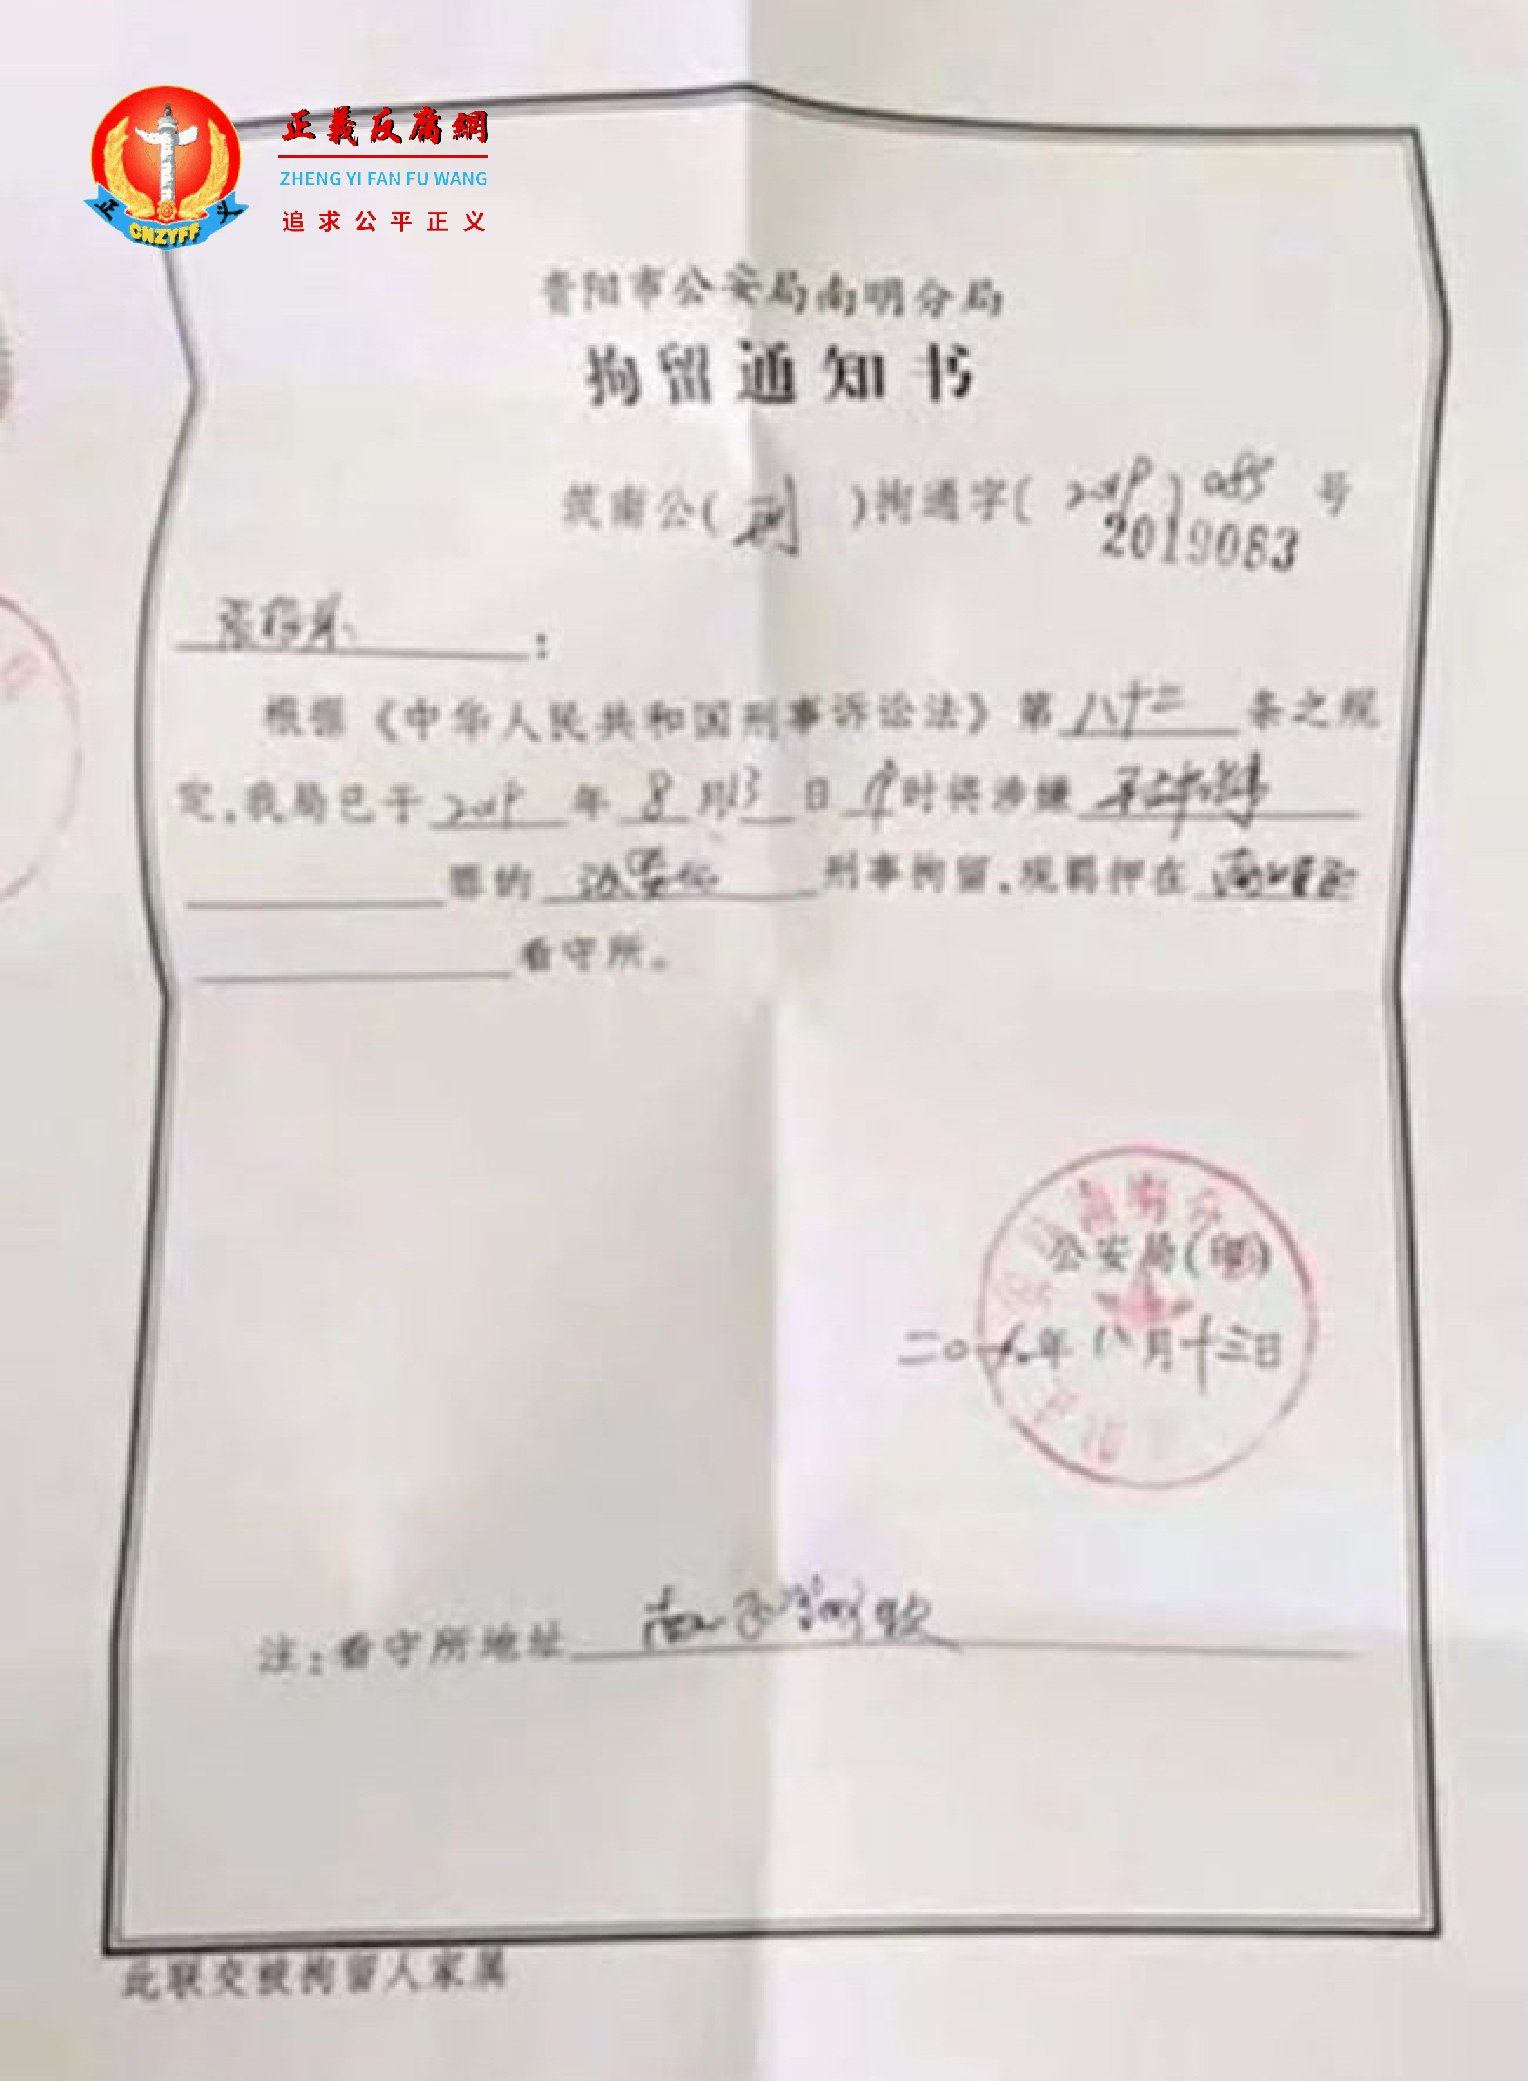 正義反腐網
ZHENG YI FAN FU WANG
追求公平正义
正 义
CNZYFF
贵阳市公安局南明分局
拘留通知书
筑南公(刑)拘通字(2019)085号
2019083
:
根据《中华人民共和国刑事诉讼法》第八十二条之规
定,我局已于2019年8月13日 时将涉嫌
罪的 刑事拘留,现羁押在
看守所。
公安局(印)
二〇一九年八月十三日
注:看守所地址
此联交被拘留人家属